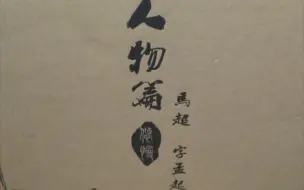 人物篇
馬超 字孟起